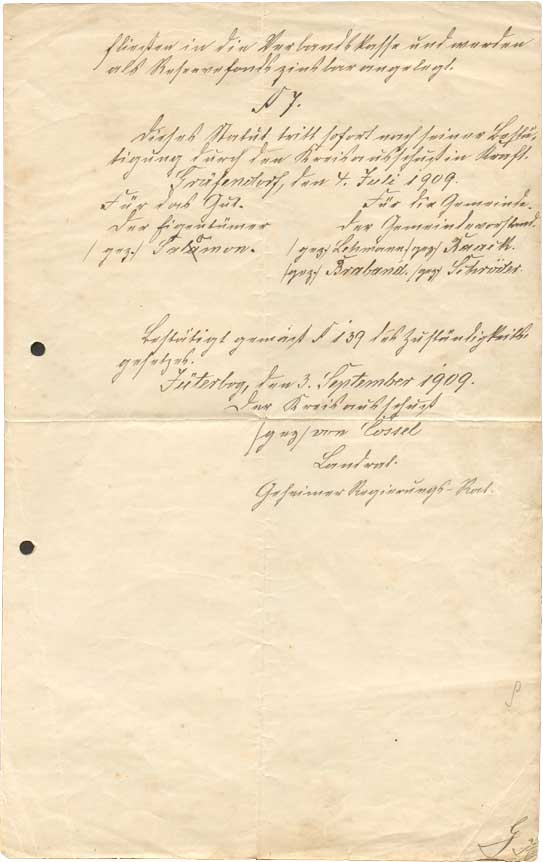 fließen in die Verbandskasse und werden
als Reservefonds zinsbar angelegt.
§ 7.
Dieses Statut tritt sofort nach seiner Bestä-
tigung durch den Kreisausschuß in Kraft.
Gräfendorf, den 4. Juli 1909.
Für das Gut. Für die Gemeinde.
Der Eigentümer der Gemeindevorstand.
/gez/ Salomon. /gez/ Lehmann /gez/ Kaack.
/gez/ Braband. /gez/ Schröder.
Bestätigt gemäß § 139 des Zuständigkeits-
gesetzes.
Jüterbog, den 3. September 1909.
Der Kreisausschuß
/gez/ von Cossel
Landrat.
Geheimer Regierungs-Rat.